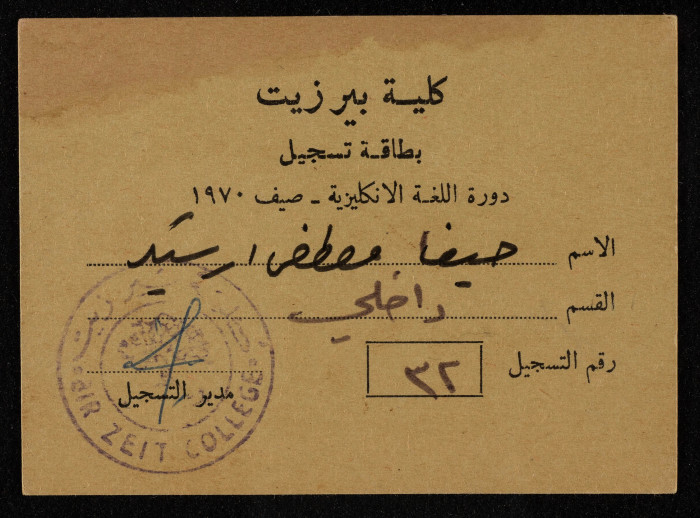 كلية بيرزيت
بطاقة تسجيل
دورة اللغة الانكليزية - صيف ١٩٧٠
الاسم حيفا مصطفى ارشيد
القسم داخلي
رقم التسجيل ٣٢
مدير التسجيل
BIR ZEIT COLLEGE